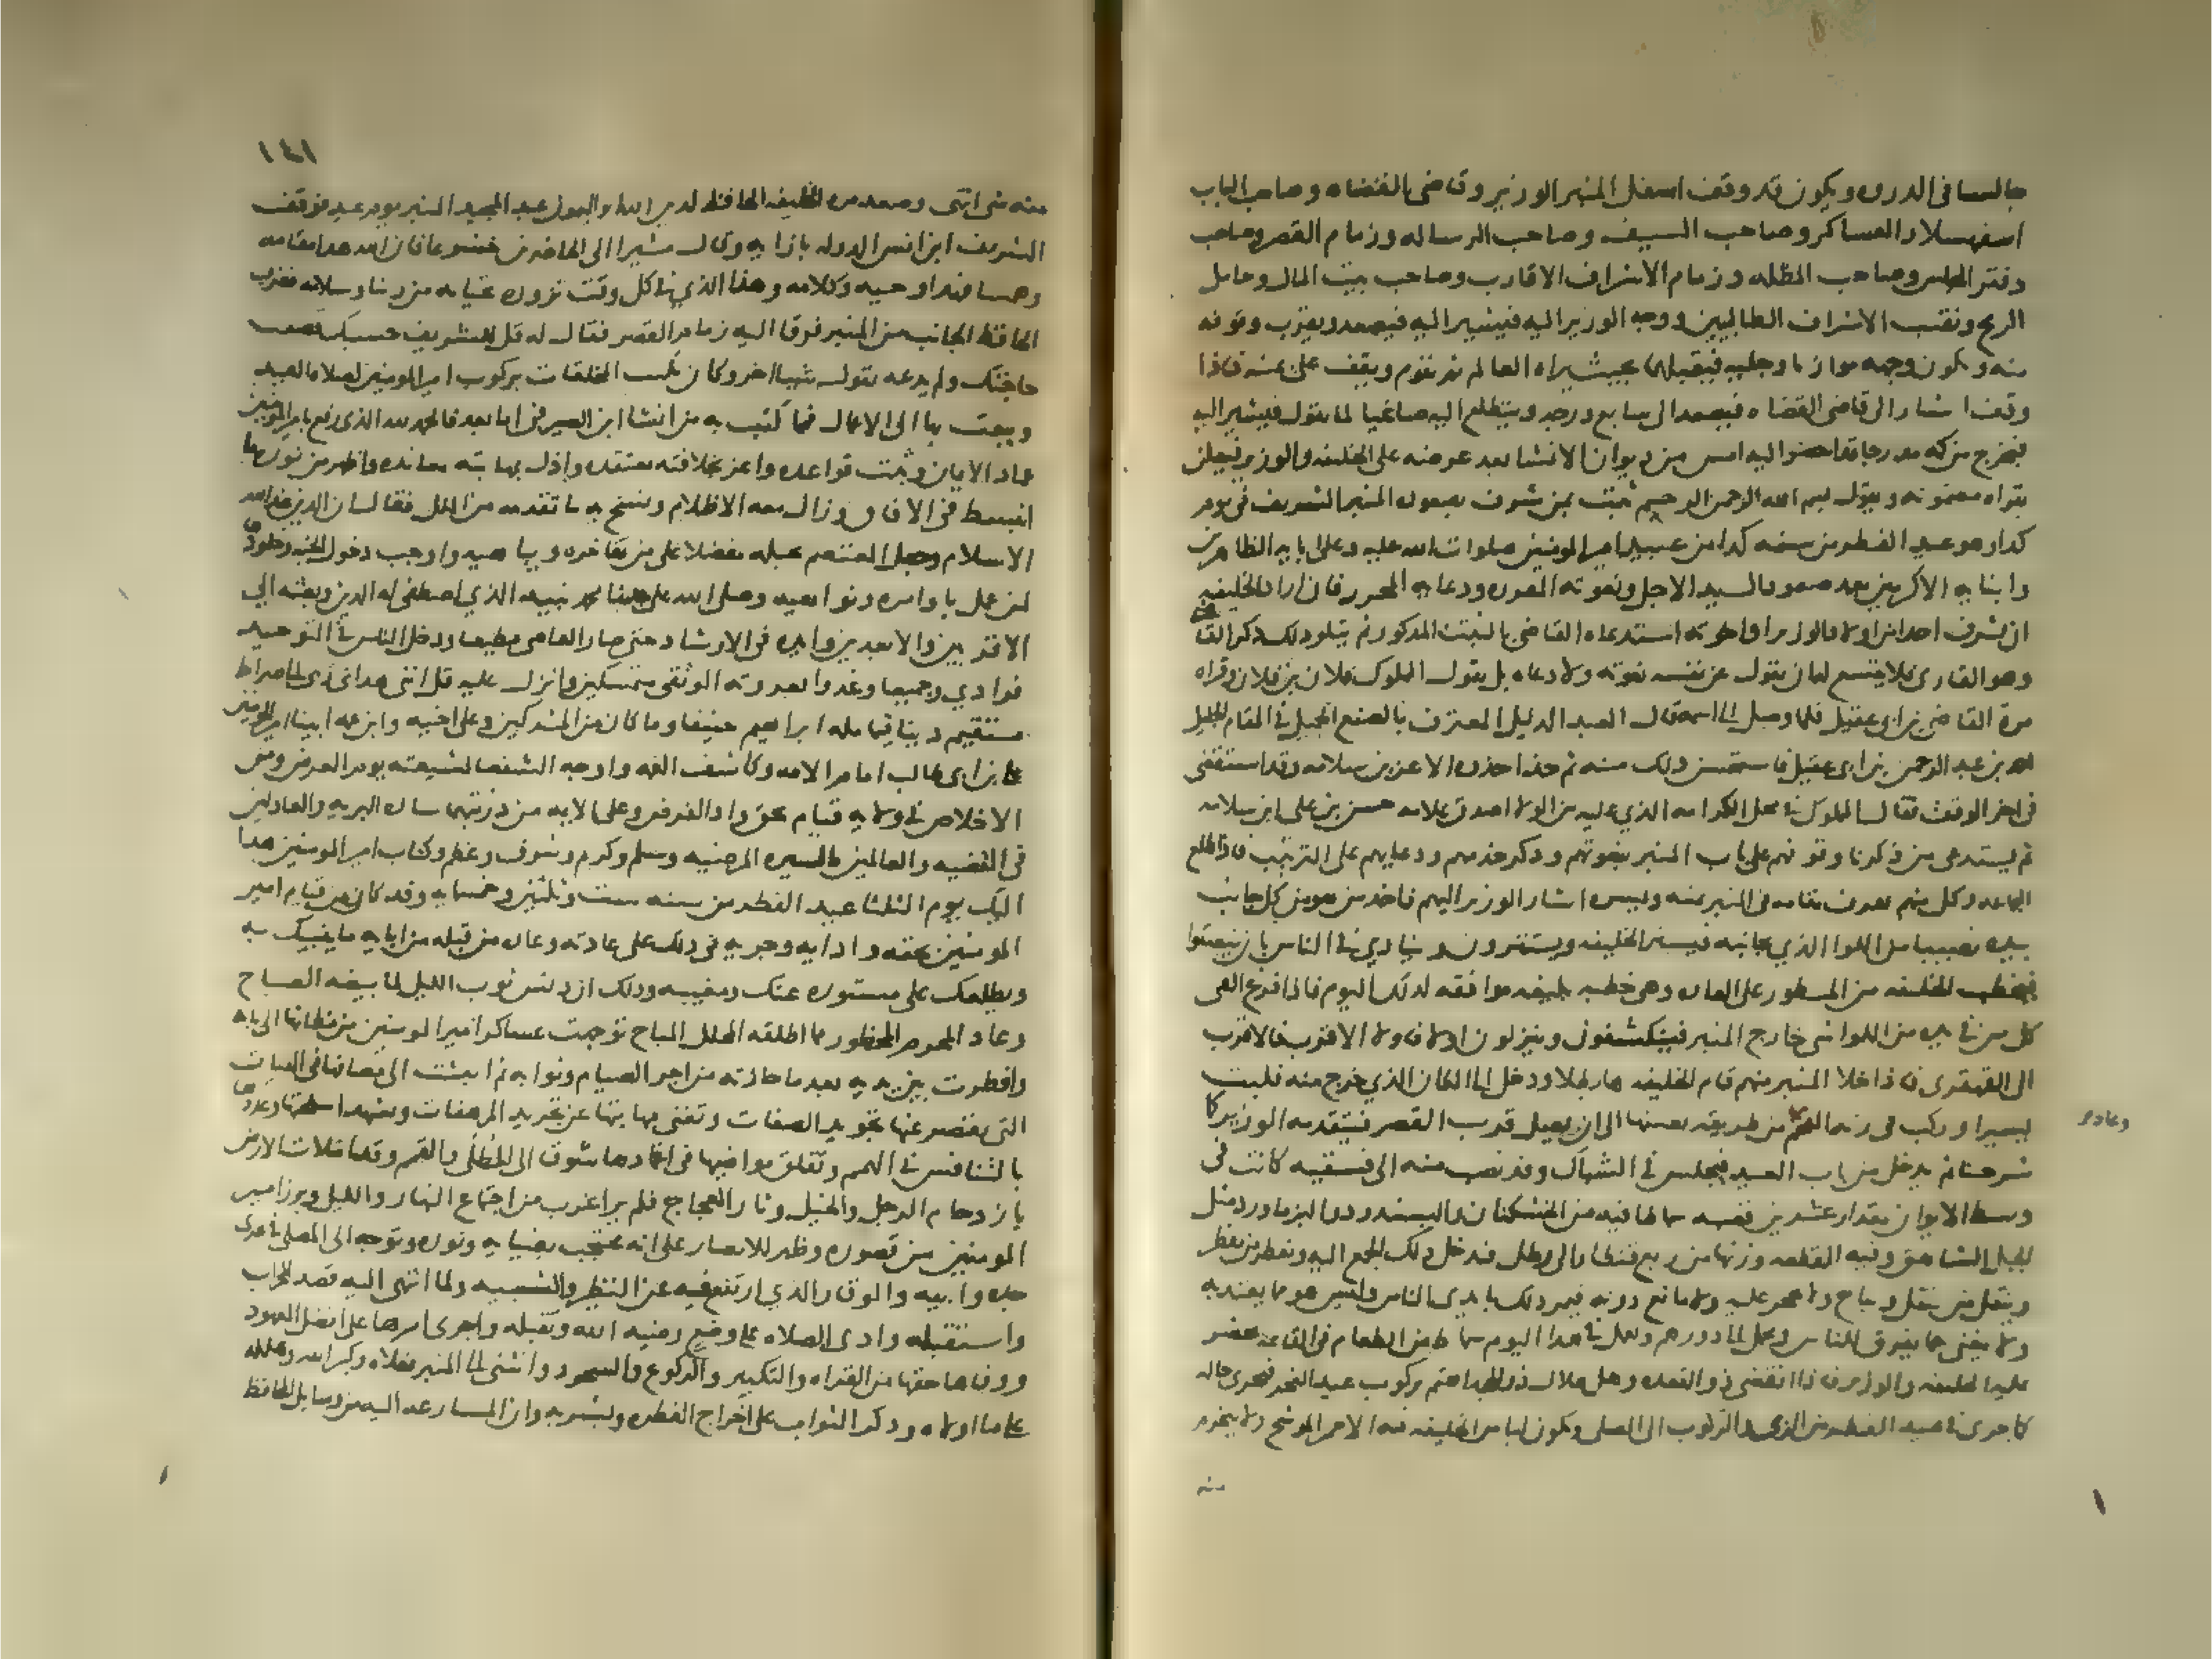 جالسا فى الدروه ويكون قد وقف اسفل المنبر الوزير وقاضى القضاه وصاحب الباب
اسفهسلار العساكر وصاحب السيف وصاحب الرساله وزمام القصر وصاحب
دفتر المجلس وصاحب المظله وزمام الاشراف الاقارب وصاحب بيت المال وحامل
الرمح ونقيب الاشراف الطالبيين ووجه الوزير اليه فيشير اليه فيصعد ويقرب وقوفه
منه ويكون وجهه موازيا رجليه فيقبلهما بحيث يراه العالم ثم يقوم ويقف على يمنه فاذا
وقف اشار الى قاضى القضاه فيصعد الى سابع درجه ويتطلع اليه صاغيا لما يقول فيشير اليه
فيخرج من كمه مدرجا قد احضر اليه امس من ديوان الانشا بعد عرضه على الخليفه والوزير فيعلن
بقراه مضمونه ويقول بسم الله الرحمن الرحيم ثبت بمن شرف بصعوده المنبر الشريف فى يوم
كدا وهو عيد الفطر من سنه كدا من عبيد امير المومنين صلوات الله عليه وعلى ابايه الطاهرين
وابنايه الاكرمين بعد صعود السيد الاجل ونعوته المقرره ودعايه المحرر فان اراد الخليفه
ان يشرف احدا من اولاد الوزير واخوته استدعاه القاضى بالنبت المدكور ثم يتلو دلك دكر القاضى
وهو القارى فلا يتسع له ان يقول عن نفسه نعوته ولا دعاه بل يقول المملوك فلان بن فلان وقراه
مره القاضى بن ابى عقيل فلما وصل الى اسمه قال العبد الدليل المعترف بالصنع الجميل فى المقام الجليل
احمد بن عبد الرحمن بن ابى عقيل فاستحسن دلك منه ثم حذا حذوه الاعز بن سلامه وقد استقضى
فى اخر الوقت فقال المملوك فى محل الكرامه الذي عليه من الولا اصدق علامه حسن بن على ابن سلامه
ثم يستدعى من ذكرنا وقوفهم على باب المنبر بنعوتهم ودكر خدمهم ودعايهم على الترتيب فاذا طلع
الجماعه وكل منهم يعرف مقامه فى المنبر يمنه ويسره اشار الوزير اليهم فاخذ من هو من كل جانب
بيده نصيبا من اللوا الذي بجانبه فيستر الخليفه ويستترون وينادي فى الناس بان ينصتوا
فيخطب الخليفه من المسطور على العاده وهى خطبه بليغه موافقه لدلك اليوم فاذا فرغ القى
كل من فى يده من اللوا شى خارج المنبر فينكشفون وينزلون اولا فاولا الاقرب فالاقرب
الى القهقرى فاذا خلا المنبر منهم قام الخليفه هابطا ودخل الى المكان الذي خرج منه فلبث
يسيرا وركب فى زيه المفخم من طريقه بعينها الى ان يصل قرب القصر فيتقدمه الوزير كما
وعاد فى
شرحنا ثم يدخل من باب العيد فيجلس فى الشباك وقد نصب منه الى فسقيه كانت فى
وسط الايوان مقدار عشرين قصبه سماط فيه من الخشكنان والبسندود والبزماورد مثل
الجبل الشاهق وفيه القطعه وزنها من ربع قنطار الى رطل فيدخل دلك الجمع اليه ويفطر من يفطر
وينقل من ينقل ويباح ولا يحجر عليه ولا مانع دونه فيمر دلك بايدى الناس وليس هو مما يعتد به
ولا يغنى مما يفرق للناس ويحمل الى دورهم ويعمل فى هدا اليوم سماط من الطعام فى القاعه يحضر
عليه الخليفه والوزير فاذا انقضى ذو القعده وهل هلال ذى الحجه اهتم بركوب عيد النحر فيجرى حاله
كما جرى فى عيد الفطر من الزى والركوب الى المصلى ويكون لباس الخليفه فيه الاحمر الموشح ولا ينخرم
منه
١٤١
منه شى انتهى وصعد مره الخليفه الحافظ لدين الله ابو الميمون عبد المجيد المنبر يوم عيد فوقف
الشريف ابن انس الدوله بازايه وقال مشيرا الى الحاضرين خشوعا فان الله هدا مقامه
وهذا الذي فى كل وقت ترون تحياته من ربنا وسلامه فضرب
الحافظ الجانب من المنبر فرقا اليه زمام القصر فقال له قل للشريف حسبك قضيت
حاجتك ولم يدعه يقول شيا اخر وكان تكتب المخلقات بركوب امير المومنين لصلاه العيد
ويبعث بها الى الاعمال فمما كتب به من انشا ابن الصيرفى اما بعد فالحمد لله الذى رفع بامير المومنين
عماد الايمان وثبت قواعده واعز بخلافته معتقده واذل بمهابته معانده واظهر من نوره ما
انبسط فى الافاق وزال معه الاظلام ونسخ به ما تقدمه من الملل فقال ان الدين عند الله
الاسلام وجعل المعتصم بحبله مفضلا على من يفاخره ويباهيه واوجب دخول الجنه وخلودها
لمن عمل باوامره ونواهيه وصلى الله على سيدنا محمد نبيه الذي اصطفى له الدين وبعثه الى
الاقربين والابعدين وايده فى الارشاد حتى صار العاصى مطيعا ودخل الناس فى التوحيد
فرادى وجميعا وغدوا بعروته الوثقى متمسكين وانزل عليه قل اننى هدانى ربى الى صراط
مستقيم دينا قيما مله ابراهيم حنيفا وما كان من المشركين وعلى اخيه وابن عمه ابينا امير المومنين
على بن ابى طالب امام الامه وكاشف الغمه واوجه الشفعا لشيعته يوم العرض ومن
الاخلاص فى ولايه قيام بحق وادا الفرض وعلى الايمه من ذريتهما ساده البريه والعادلين
فى القضيه والعاملين بالسيره المرضيه وسلم وكرم وشرف وعظم وكتاب امير المومنين هدا
اليك يوم الثلثا عيد الفطر من سنه ست وثلثين وخمسمايه وقد كان من قيام امير
المومنين بحقه وادايه وجريه فى دلك على عادته وعاده من قبله من ابايه ما ينبيك به
ويطلعك على مستوره عنك ومغيبه ودلك ان دنس ثوب الليل لما بيضه الصباح
وعاد المحرم المحظور بما اطلقه المحلل المباح توجهت عساكر امير المومنين من مظانها الى بابه
وافطرت بين يديه بعد ما حازته من اجر الصيام وثوابه ثم انثنت الى مصافها فى الهيات
التى يقصر عنها تجريد الصفات وتغنى مهابتها عن تجريد المرهفات وتشهد اسلحتها وعددها
بالتنافس فى الهمم وتقلق مواضيها فى اغمادها شوقا الى الطلى والقمم وقد امتلات الارض
بازدحام الرجل والخيل وثار العجاج فلم ير اغرب من اجتماع النهار والليل وبرز امير
المومنين من قصوره وظهر للابصار على انه محتجب بضيايه ونوره وتوجه الى المصلى فى هدى
جده وابيه والوقار الذي ارتفع فيه عن النظير والشبيه ولما انتهى اليه قصد المحراب
واستقبله وادى الصلاه على وضع رضيه الله وتقبله واجرى امرها على افضل المعهود
ووفاها حقها من القراه والتكبير والركوع والسجود وانتهى الى المنبر فعلاه وكبر الله وهلله
على ما اولاه ودكر الثواب على اخراج الفطره وبشر به وان المسارعه اليه من وسايل المحافظ